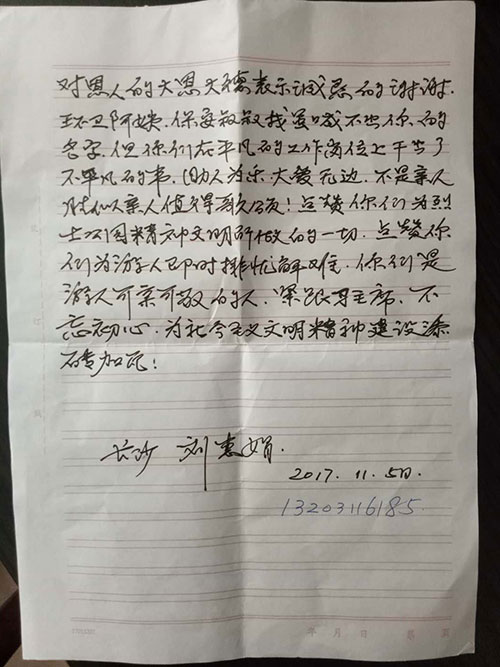 对恩人的大恩大德表示诚恳的谢谢.
环卫阿姨、保安叔叔我虽喊不出你的
名字. 但你们在平凡的工作岗位上干出了
不平凡的事. 助人为乐大爱无边. 不是亲人
胜似亲人值得歌颂! 点赞你们为烈
士公园精神文明所做的一切. 点赞你
们为游人即时排忧解难. 你们是
游人可亲可敬的人. 紧跟习主席. 不
忘初心. 为社会主义文明精神建设添
砖加瓦!
长沙 刘惠娟.
2017. 11. 5日.
13203116185.
年 月 日 第 页